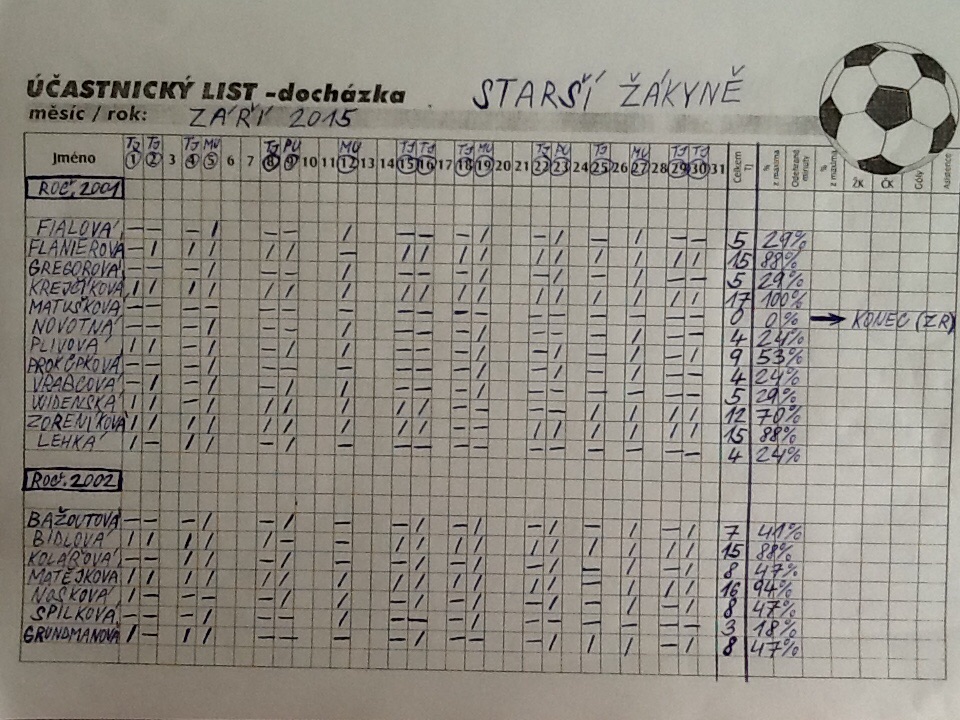 ÚČASTNICKÝ LIST -docházka STARŠÍ ŽÁKYNĚ
měsíc / rok: ZÁŘÍ 2015
TJ TJ TJ MU TJ PU MU TJ TJ TJ MU TJ PU TJ MU TJ TJ
Jméno 1 2 3 4 5 6 7 8 9 10 11 12 13 14 15 16 17 18 19 20 21 22 23 24 25 26 27 28 29 30 31 Celkem TJ % z maxima Odehrané minuty % z maxima ŽK ČK Góly Asistence
ROČ. 2001
FIALOVÁ 5 29%
FLANIEROVÁ 15 88%
GREGOROVÁ 5 29%
KREJČÍKOVÁ 17 100%
MATUŠKOVÁ 0 0% → KONEC (ZR)
NOVOTNÁ 4 24%
PLIVOVÁ 9 53%
PROKOPKOVÁ 4 24%
VRABCOVÁ 5 29%
WIDENSKÁ 12 70%
ZOŘENÍKOVÁ 15 88%
LEHKÁ 4 24%
ROČ. 2002
BAŽOUTOVÁ 7 41%
BÍDLOVÁ 15 88%
KOLÁŘOVÁ 8 47%
MATĚJKOVÁ 16 94%
NOSKOVÁ 8 47%
SPILKOVÁ 3 18%
GRUNDMANOVÁ 8 47%